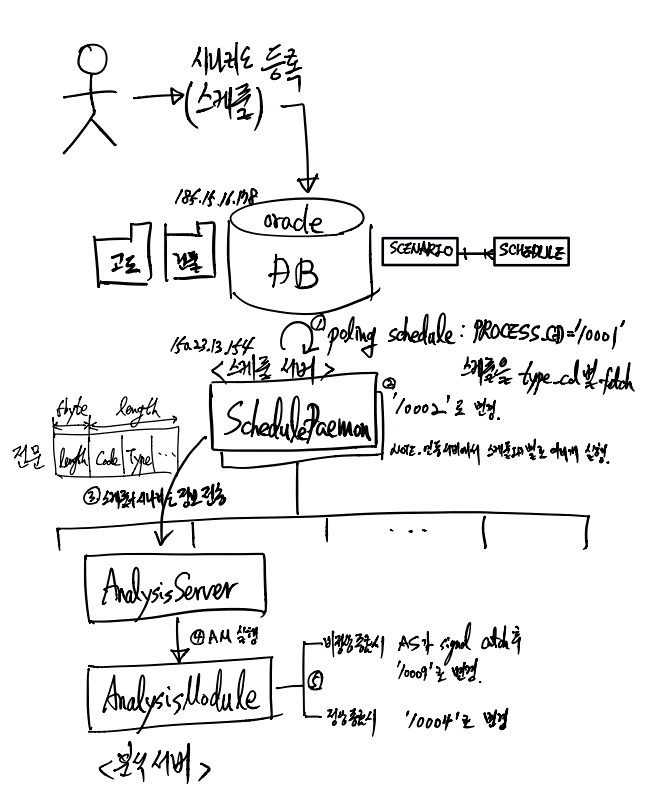 시나리오 등록
(스케쥴)
185.15.16.138
oracle
DB
고도
건물
SCENARIO
SCHEDULE
① poling schedule : PROCESS_CD='10001'
스케쥴은 type_cd별 fetch
150.23.13.154
<스케쥴 서버>
ScheduleDaemon
② '10002'로 변경.
NOTE. 연동서버에서 스케쥴ID별로 여러개 실행.
8byte
length
전문
length
Code
Type
...
③ 스케쥴과 시나리오 정보 전송
...
AnalysisServer
④ AM 실행
AnalysisModule
⑤
비정상종료시 AS가 signal catch 후
'10009'로 변경.
정상종료시 '10004'로 변경
<분석 서버>